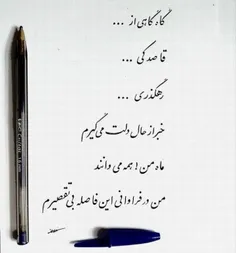 گاه گاهی از ...
قاصدکی ...
رهگذری ...
خبر از حال دلت می‌گیرم
ماه من! همه می دانند
من در فراوانی این فاصله بی‌تقصیرم